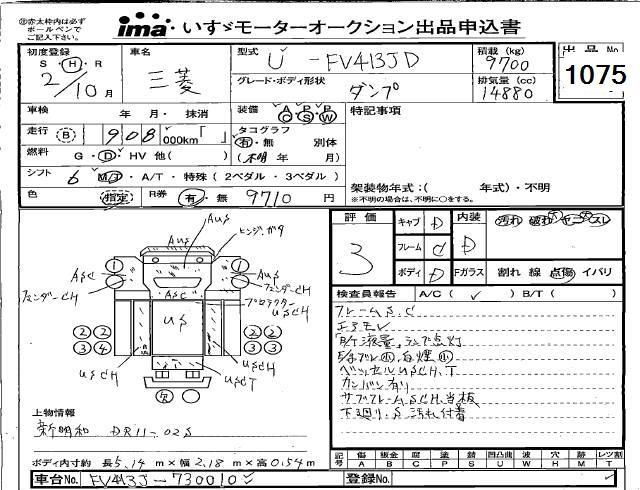 ㊟赤太枠内は必ず
ボールペンで
ご記入下さい。
ima いすゞモーターオークション出品申込書
初度登録
S・Ⓗ・R
2/10月
車名
三菱
型式
U - FV413JD
グレード・ボディ形状
ダンプ
積載 (kg)
9700
排気量 (cc)
14880
出品 No
1075
車検 年 月・抹消
装備 A/C P/S P/W
特記事項
走行 Ⓑ 908,000km「 」
タコグラフ
有・無 別体
(不明 年 月)
燃料 G・Ⓓ・HV 他( )
シフト 6 M/J・A/T・特殊(2ペダル・3ペダル)
色 指定 R券 有・無 9710 円
架装物年式:( 年式)・不明
※不明の場合は、不明に〇をする。
AUS
AUS
ヒンジガタ
ASC
フェンダーCH
AUS
フェンダーCH
ASC
プロテクター
USCH
US
① ①
②② ②②
③④ ③③
USCH
USCH
USCT
欠
上物情報
新明和 DR11-02S
ボディ内寸約 長5.14m×幅2.18m×高0.54m
車台No. FV413J-730010
評価
3
キャブ D
フレーム C
ボディ D
内装 汚れ 破れ ヤニ スレ
D
Fガラス 割れ 線 点傷 イバリ
検査員報告 A/C( ✓ ) B/T( )
フレームS.C
エアモレ
「所液量」ランプ点灯
白煙小
ベッセルUSCH.T
カンバン有り
サブフレームSCH.当板
下廻り.S 汚れ付着
記号 傷 A 鈑金 B 腐 C 塗 P 錆 S 凹凸曲 U 波 W 穴 H 時 M レツ割 T
登録No.